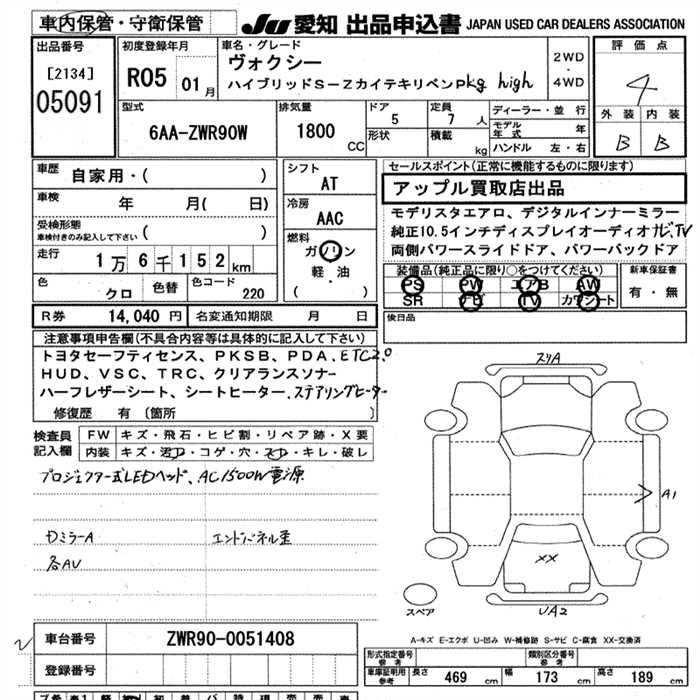 車内保管・守衛保管
JU 愛知 出品申込書 JAPAN USED CAR DEALERS ASSOCIATION
出品番号
[2134]
05091
初度登録年月
R05 01月
車名・グレード
ヴォクシー
ハイブリッドS-ZカイテキリベンPkg high
2WD
・
4WD
評価点
4
外装 内装
B B
型式
6AA-ZWR90W
排気量
1800
CC
ドア
5
形状
定員
7 人
積載
kg
ディーラー・並行
モデル年式 年
ハンドル 左・右
車歴
自家用・( )
車検
年 月( 日)
受検形態
車検付きのみ記入して下さい ( )
走行
1万6千152km
色
クロ
色替
色コード
220
シフト
AT
冷房
AAC
燃料
ガソリン
軽・油
( )
セールスポイント(正常に機能するものに限ります)
アップル買取店出品
モデリスタエアロ、デジタルインナーミラー
純正10.5インチディスプレイオーディオナビ、TV
両側パワースライドドア、パワーバックドア
装備品(純正品に限り○をつけてください)
PS PW エアB AW
SR ナビ TV カワシート
新車保証書
有・無
R券 14,040円 名変通知期限 月 日
後日品
注意事項申告欄(不具合内容等は具体的に記入して下さい)
トヨタセーフティセンス、PKSB、PDA、ETC2.0
HUD、VSC、TRC、クリアランスソナー
ハーフレザーシート、シートヒーター、ステアリングヒーター
修復歴 有 〔箇所 〕
検査員
記入欄
FW キズ・飛石・ヒビ割・リペア跡・X要
内装 キズ・汚レ・コゲ・穴・スレ・キレ・破レ
プロジェクター式LEDヘッド、AC1500W電源
DミラーA エンドパネル歪
各AU
スリA
A1
XX
UA2
スペア
A-キズ E-エクボ U-凹み W-補修跡 S-サビ C-腐食 XX-交換済
車台番号 ZWR90-0051408
登録番号
形式指定番号
参考
類別区分番号
参考
車庫証明用
参考
長さ 469 cm 幅 173 cm 高さ 189 cm